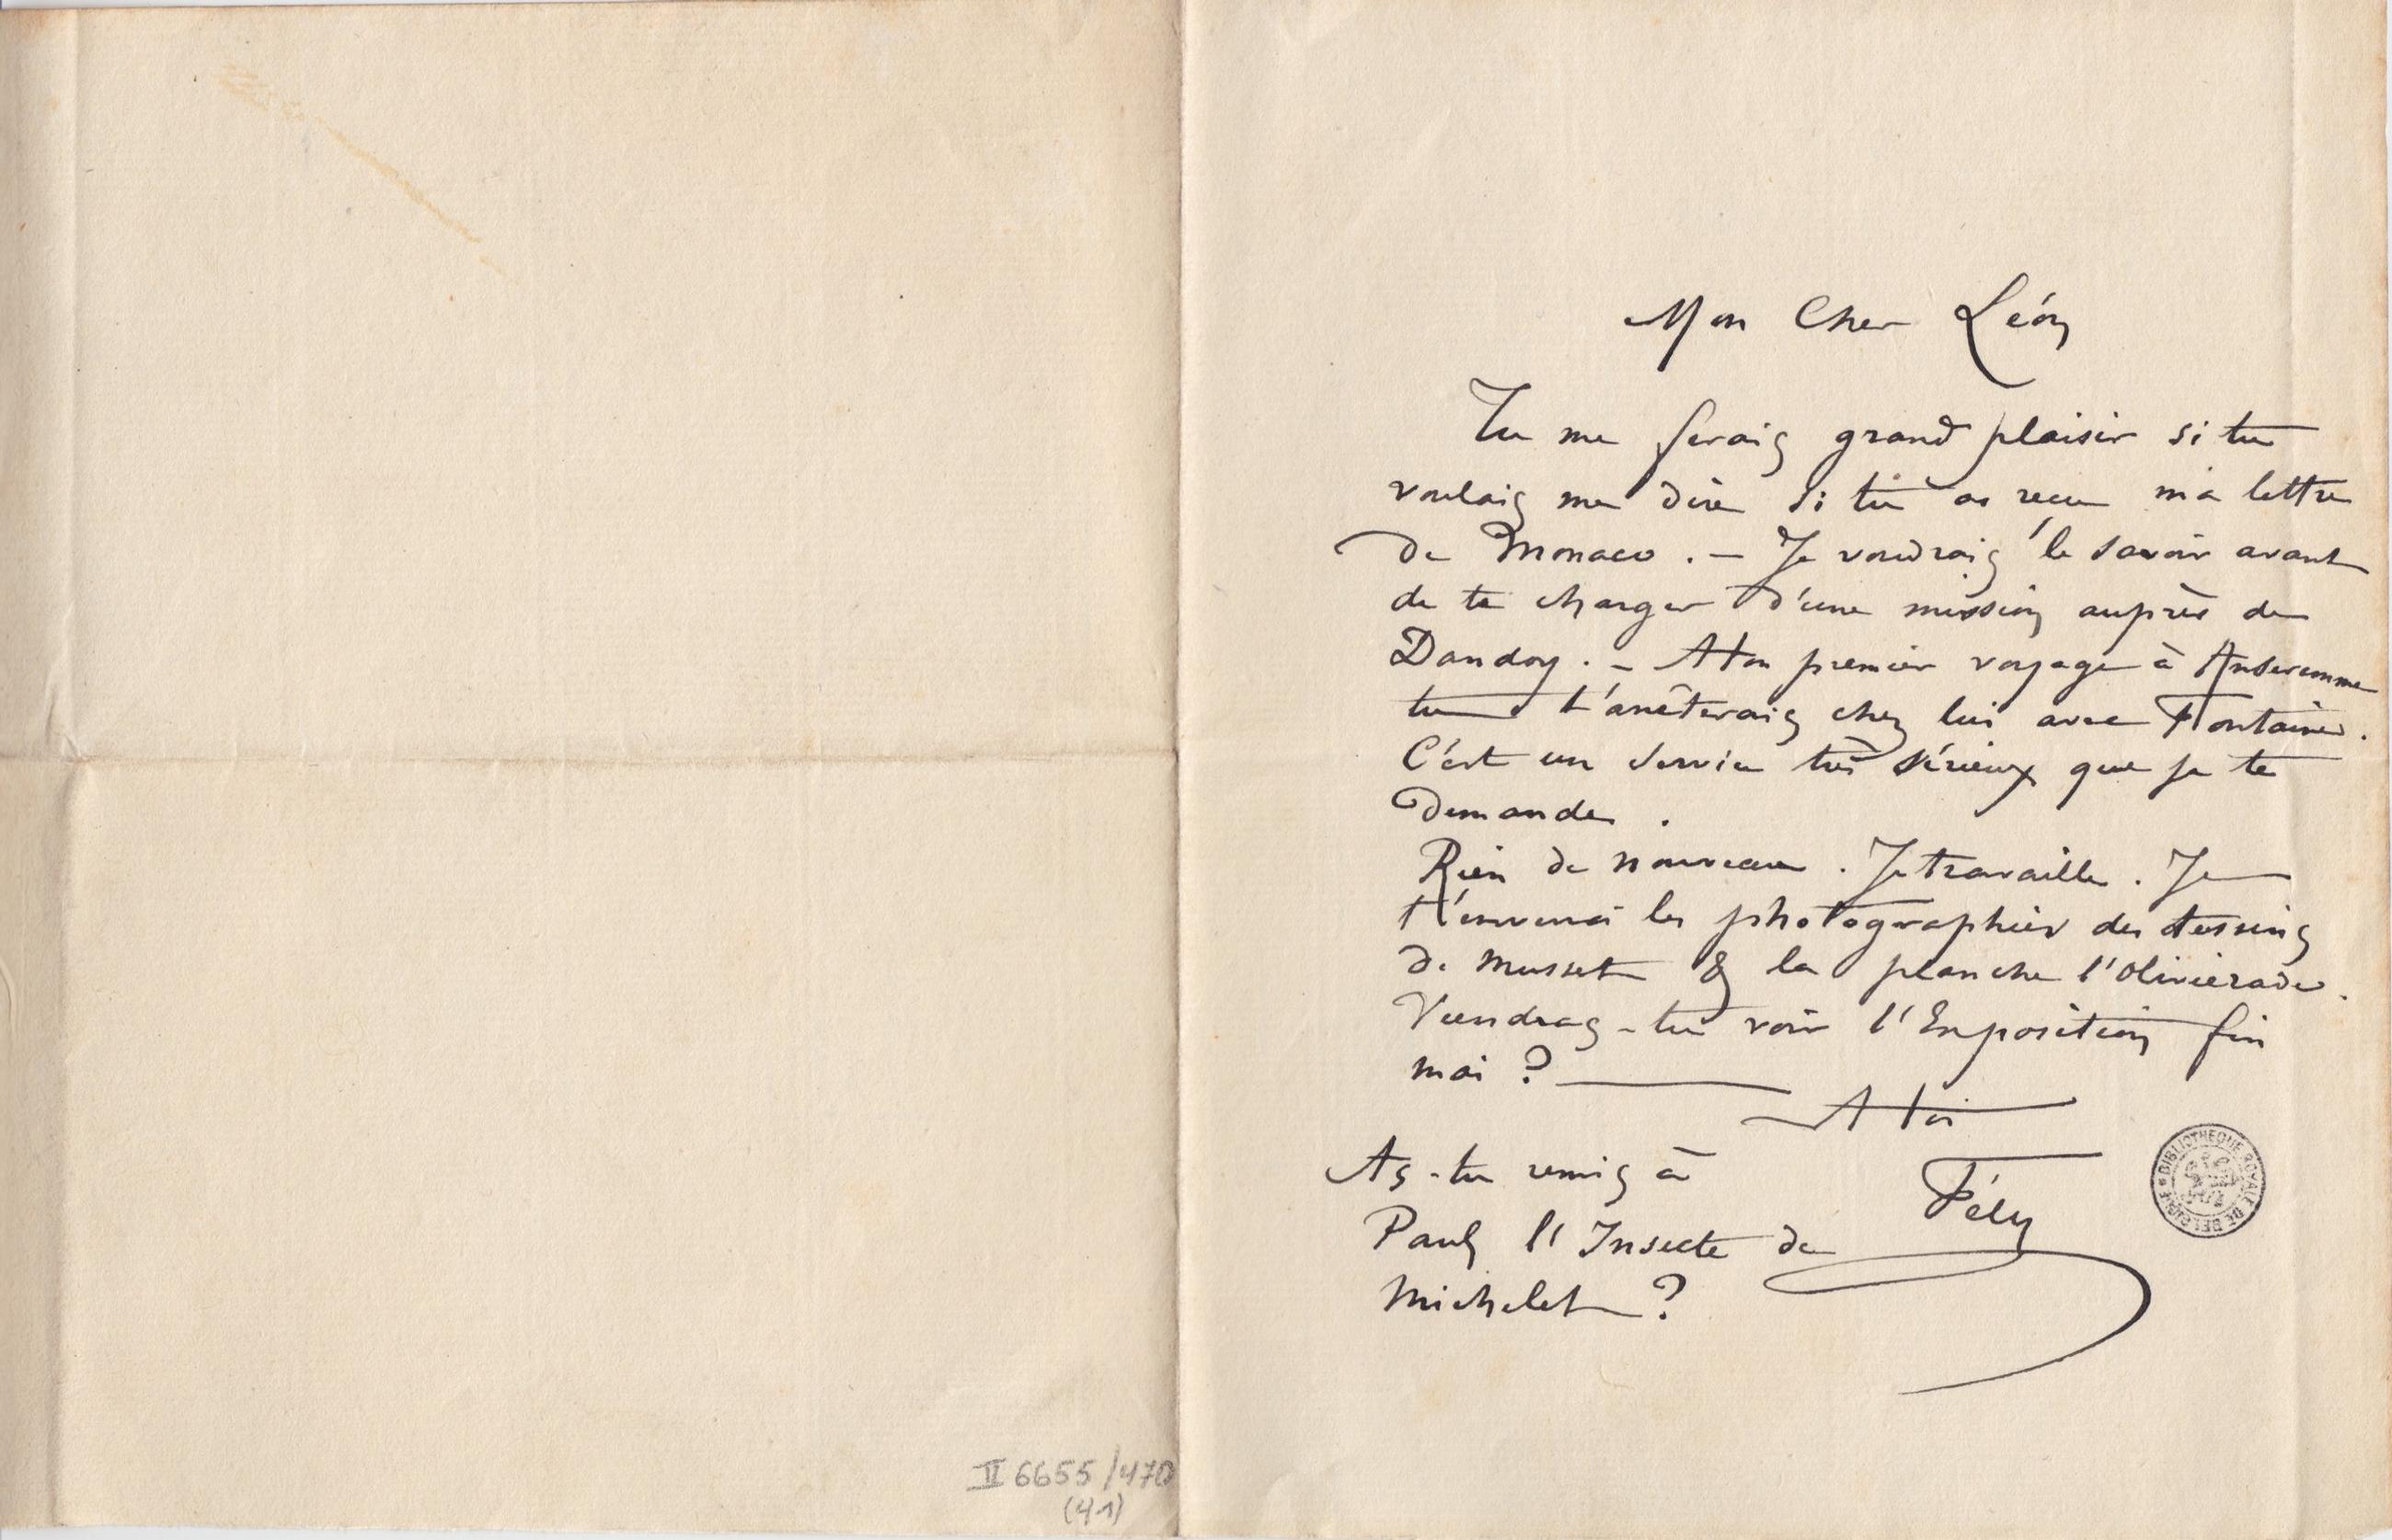 Mon Cher Léon
Tu me ferais grand plaisir si tu
voulais me dire si tu as reçu ma lettre
de Monaco. — Je voudrais le savoir avant
de te charger d'une mission auprès de
Dandoy. — A ton premier voyage à Anseremme
tu t'arrêterais chez lui avec Fontaine.
C'est un service très sérieux que je te
demande.
Rien de nouveau. Je travaille. Je
t'enverrai les photographies des dessins
de Musset & la planche l'Olivierade.
Viendras-tu voir l'Exposition fin
mai ?
A toi
Fély
As-tu remis à
Paul l'Insecte de
Michelet ?
BIBLIOTHEQUE ROYALE DE BELGIQUE
II 6655/470
(41)